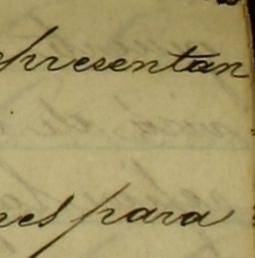 epresentan
nes para